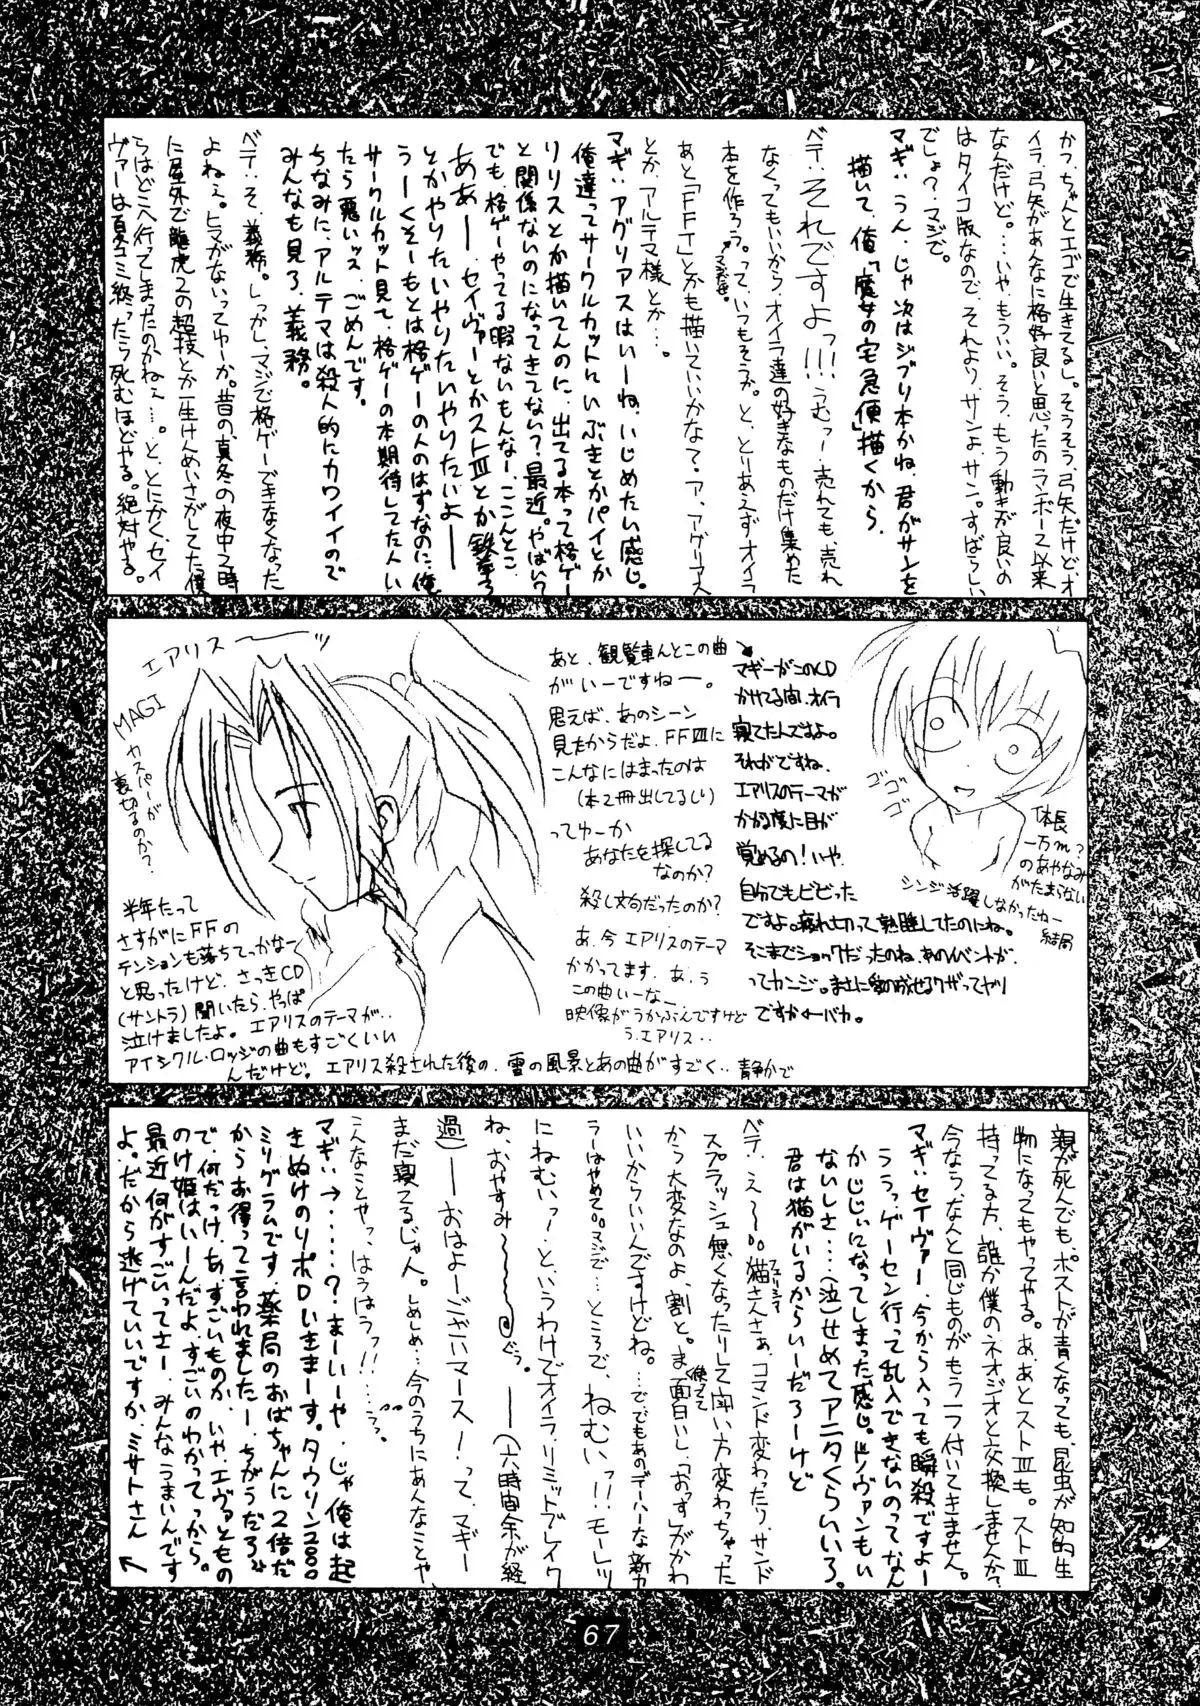 かつ、ちゃんとエゴで生きてるし。そうそう、弓矢だけど、オ
イラ、弓矢があんなに格好良いと思ったのランボー2以来
なんだけど。…いや、もういい。そう、もう動きが良いの
はタイコ版なので、それより、サンよ、サン。すばらしい
でしょ?マジで。
マギぃうん、じゃ次はジブリ本かね、君がサンを
描いて、俺「魔女の宅急便」描くから、
ベテ:それですよっ!!!うむっー、売れても、売れ
なくってもいいから、オイラ達の好きなものだけ集めた
本を作ろう。って、いつもそうか。と、とりあえずオイラ
あと「FFT」とかも描いていいかなて。ア、アグリアス
とか、アルテマ様とか…。
マギぃアグリアスはいーね、いじめたい感じ。
俺達ってサークルカットにいぶきとかパイとか
リリスとか描いてんのに、出てる本って格ゲー
と関係ないのになってきてない?最近。やばい?
でも、格ゲーやってる暇ないもんなー、ここんとこ
ああー、セイヴァーとかストⅢとか鉄拳3
とかやりたいやりたいやりたいよー
うーくそーもとは格ゲーの人のはずなのに俺
サークルカット見て、格ゲーの本期待してた人い
たら悪いッス、ごめんです。
ちなみに、アルテマは殺人的にカワイイので
みんなも見ろ、義務。
ベテ:そ、義務。しっかし、マジで格ゲーできなくなった
よねぇ。ヒマがないってゆーか。昔の、真冬の夜中2時
に屋外で龍虎2の超技とか一生けんめいさがしてた僕
らはどこへ行ってしまったのかねぇ…。と、とにかく、セイ
ヴァーは夏コミ終ったら死むほどやる。絶対やる。
エアリス〜ッ
MAGI
カスパーが
裏切るのか?
半年たって
さすがにFFの
テンションも落ちてっかなー
と思ったけど、さっきCD
(サントラ)聞いたら、やっぱ
泣けましたよ。エアリスのテーマが…
アイシクル・ロッジの曲もすごくいい
んだけど。エアリス殺された後の、雪の風景とあの曲がすごく…静かで
あと、観覧車んとこの曲
がいーですねー。
思えば、あのシーン
見たからだよ、FFⅦに
こんなにはまったのは
(本2冊出してるし)
ってゆーか
あなたを探してる
なのか?
殺し文句だったのか?
あ、今エアリスのテーマ
かかってます。あ、う
この曲いーなー…
映像がうかぶんですけど
う、エアリス…
マギーがこのCD
かけてる間、オイラ
寝てたんですよ。
それがですね、
エアリスのテーマが
かかる度に目が
覚めるの!いや、
自分でもビビった
ですよ。疲れ切って熟睡してたのにね。
そこまでショックだったのね、あのイベントが、
ってカンジ。まさに愛の成せるワザってヤツ
ですか←バカ。
ゴゴゴ
体長
一万m?
のあやなみ
がたまらない
シンジ活躍しなかったねー
結局
親が死んでも、ポストが青くなっても、昆虫が知的生
物になってもやってやる。ああとストⅢも。ストⅢ
持ってる方、誰か僕のネオジオと交換しませんか。
今なら、なんと同じものがもう一つ付いてきません。
マギぃセイヴァー、今から入っても瞬殺ですよー
ううっ、ゲーセン行って乱入できないのってなん
かじじぃになってしまった感じ。ドノヴァンもい
ないしさ…(泣)せめてアニタくらいいろ。
君は猫がいるからいーだろーけど
ベテ:え〜。猫さんさぁ、コマンド変わったり、サンド
スプラッシュ無くなったりして闘い方変わっちゃった
から大変なのよ、割と。ま、面白いし、「おっす」がかわ
いいからいいんですけどね。…でもあのデハーな新キャ
ラーはやめて。マジで…ところで、ねむいっ!!!モーレツ
にねむいっ!と、いうわけでオイラ、リミットブレイク
ね、おやすみ〜〜ぐぅ。──(六時間余が経
過)──おはよーございマース!って、マギー
まだ寝てるじゃん。しめしめ…今のうちにあんなことや
こんなことやっ、はうはうっ!!…うっ。
マギぃ→……?まーいーや、じゃ俺は起
きぬけのリポDいきまーす。タウリン2000
ミリグラムです。薬局のおばちゃんに2倍だ
からお得って言われましたー、ちがうだろ
で、何だっけ、あ、すごいものか、いや、エヴァともの
のけ姫はいーんだよ、すごいのわかってっから。
最近何がすごいってさー、みんなうまいんです
よ。だから逃げていいですか、ミサトさん
67